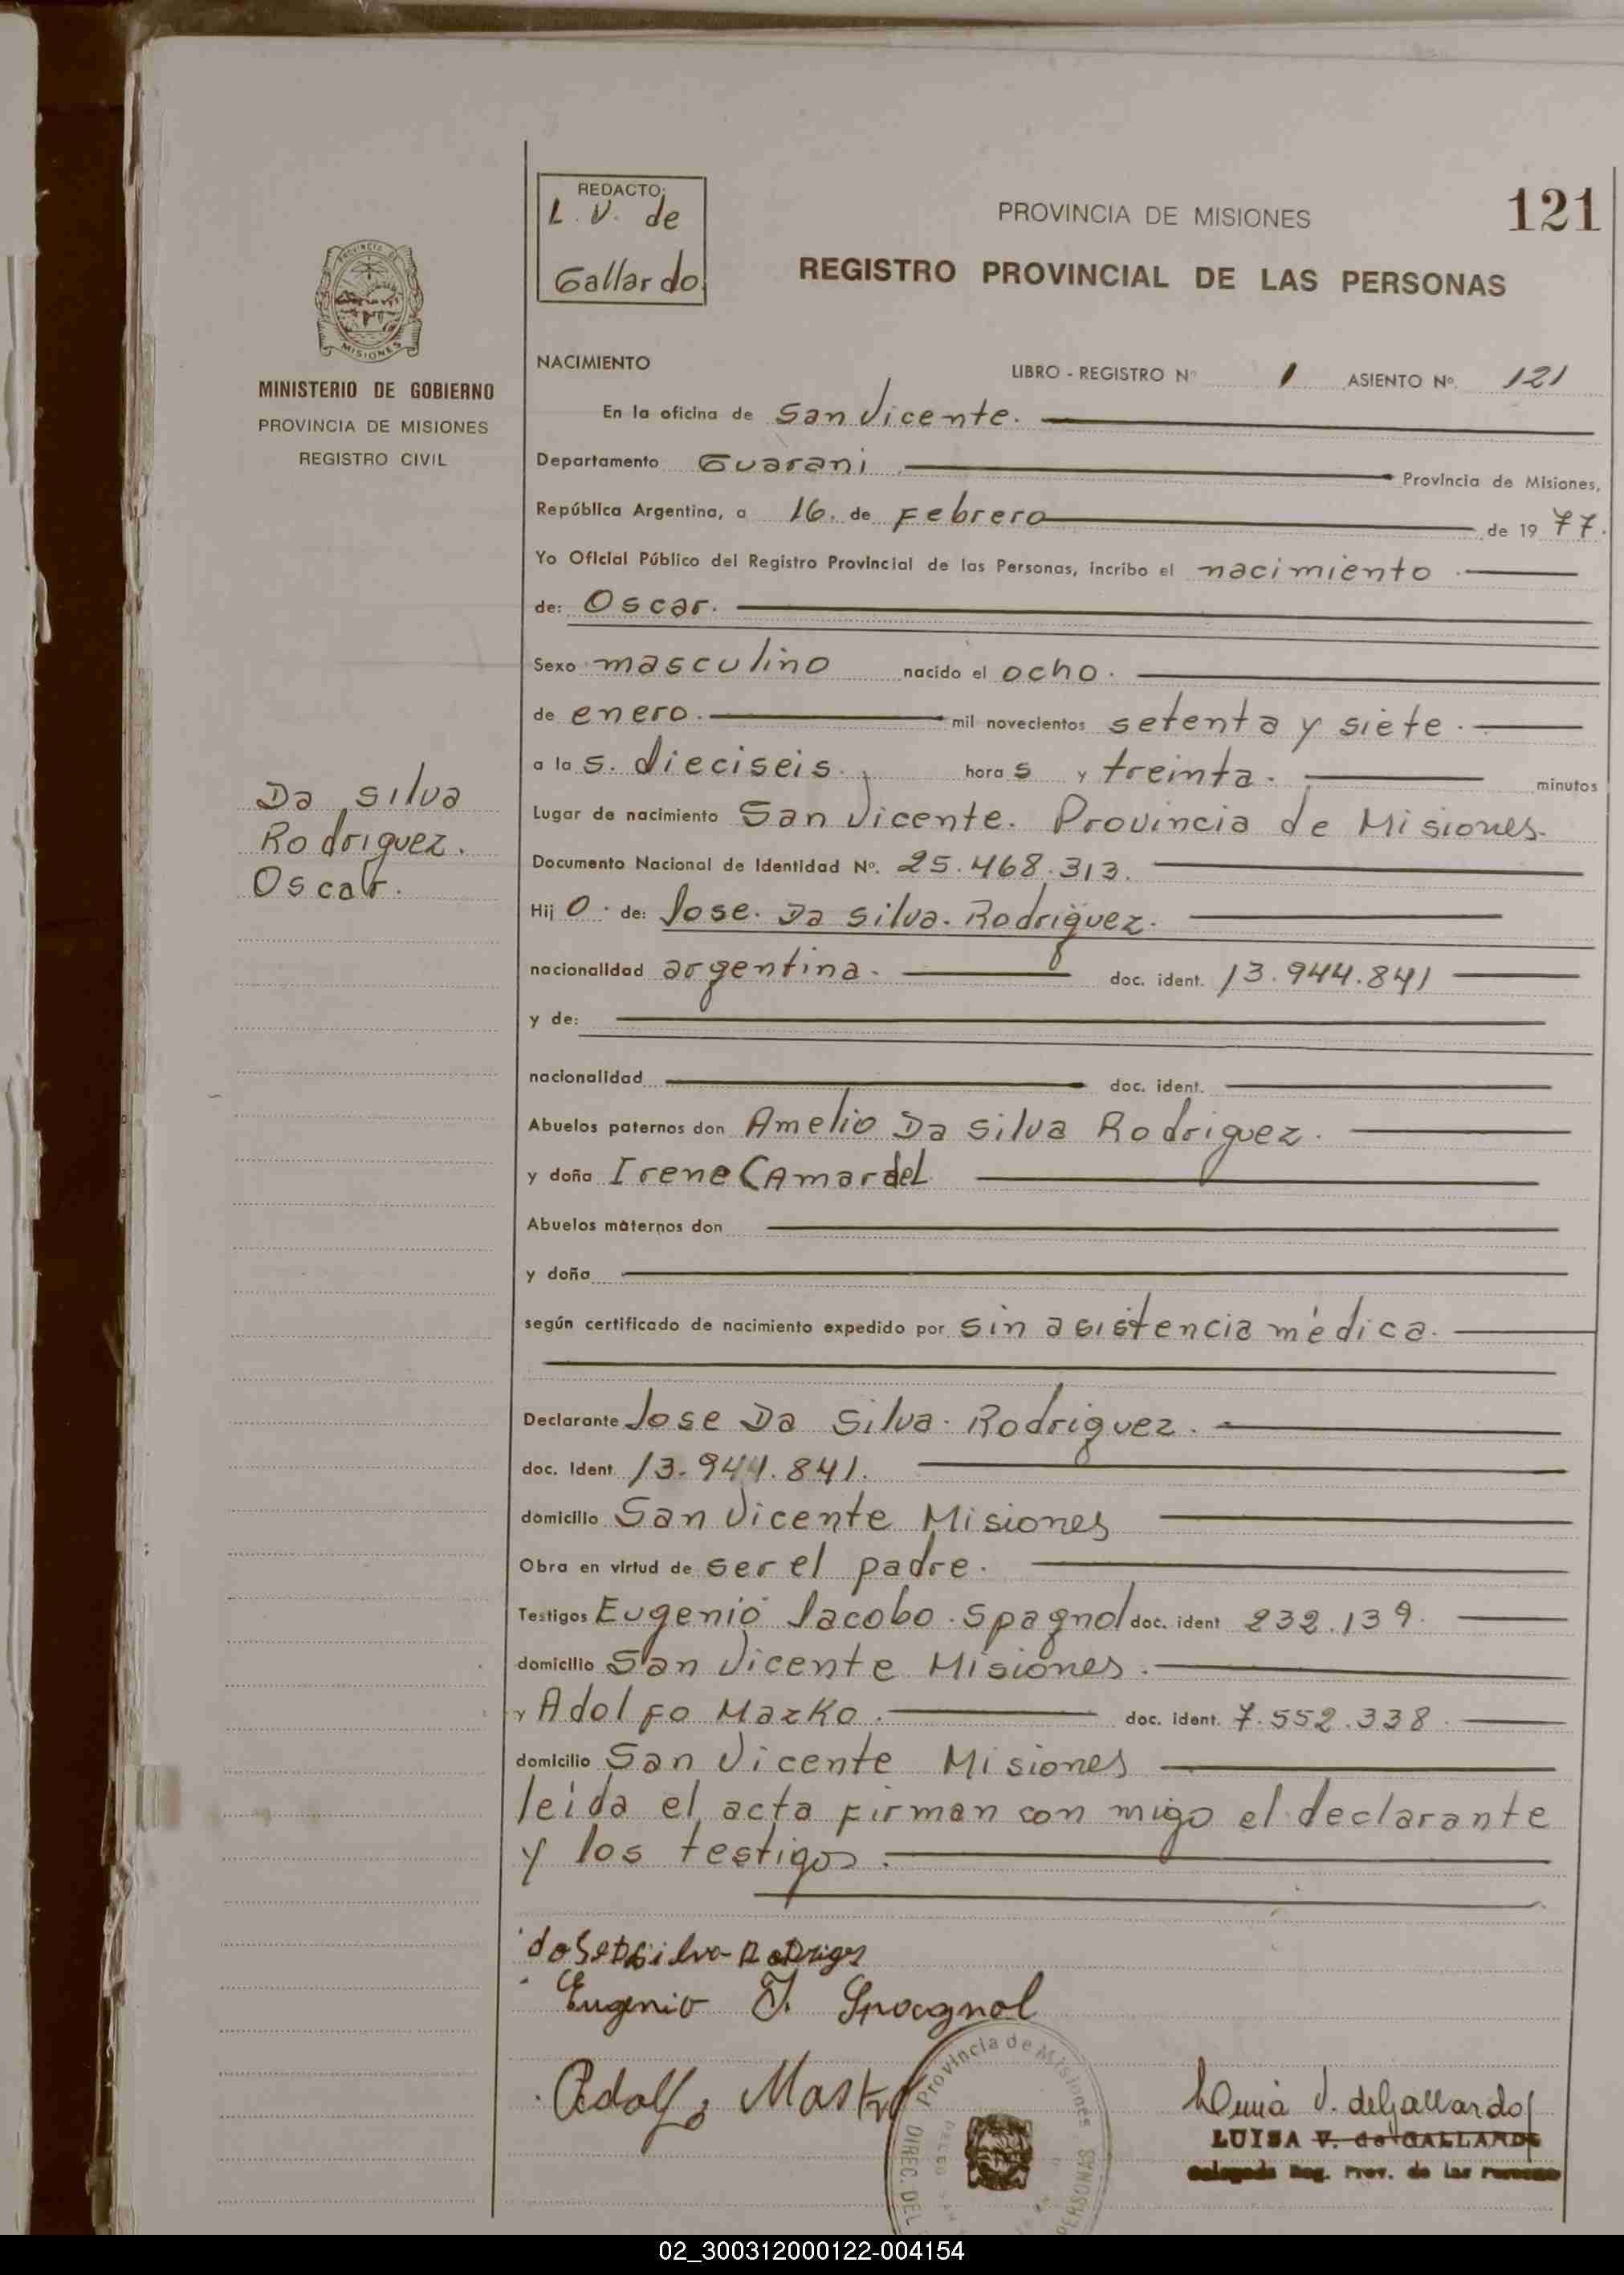 REDACTO:
L. V. de
Gallardo
PROVINCIA DE MISIONES
121
REGISTRO PROVINCIAL DE LAS PERSONAS
MISIONES
MINISTERIO DE GOBIERNO
PROVINCIA DE MISIONES
REGISTRO CIVIL
NACIMIENTO LIBRO - REGISTRO Nº 1 ASIENTO Nº. 121
En la oficina de San Vicente.
Departamento Guarani Provincia de Misiones,
República Argentina, a 16. de Febrero de 19 77.
Yo Oficial Público del Registro Provincial de las Personas, incribo el nacimiento
de: Oscar.
Sexo masculino nacido el ocho.
de enero. mil novecientos setenta y siete.
a la s. dieciseis. hora s y treinta. minutos
Lugar de nacimiento San Vicente. Provincia de Misiones.
Documento Nacional de Identidad Nº. 25.468.313.
Hij o. de: Jose. Da Silva. Rodriguez.
nacionalidad argentina. doc. ident. 13.944.841
y de:
nacionalidad doc. ident.
Abuelos paternos don Amelio Da Silva Rodriguez.
y doña Irene Camardel
Abuelos maternos don
y doña
según certificado de nacimiento expedido por sin asistencia médica.
Declarante Jose Da Silva. Rodriguez.
doc. Ident. 13.944.841.
domicilio San Vicente Misiones
Obra en virtud de ser el padre.
Testigos Eugenio Jacobo. Spagnol doc. ident 232.139.
domicilio San Vicente Misiones.
y Adolfo Mazko. doc. ident. 7.552.338.
domicilio San Vicente Misiones
leida el acta firman con migo el declarante
y los testigos.
Da Silva
Rodriguez.
Oscar.
Eugenio J. Spagnol
Adolfo
Provincia de Misiones
DIREC. DEL
PERSONAS
V. de Gallardo
LUISA V. de GALLARDO
Delegada Reg. Prov. de las Personas
02_300312000122-004154